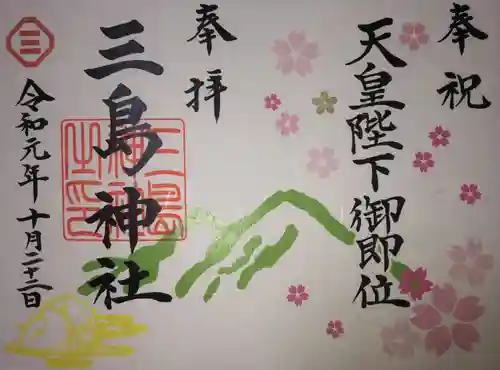 奉祝
天皇陛下御即位
奉拝
三島神社
令和元年十月二十二日
三